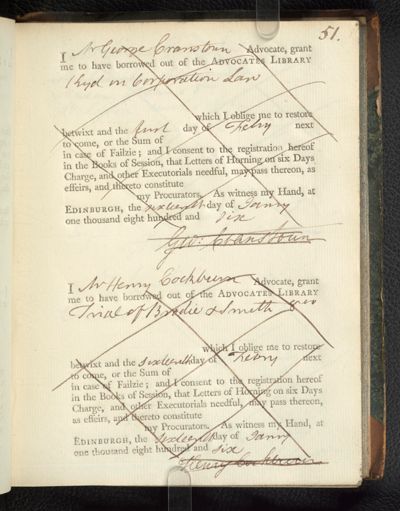 51.
I Mr George Cranstoun Advocate, grant
me to have borrowed out of the ADVOCATES LIBRARY
Kyd on Corporation Law
which I oblige me to restore
betwixt and the first day of Febry next
to come, or the Sum of
in case of Failzie; and I consent to the registration hereof
in the Books of Session, that Letters of Horning on six Days
Charge, and other Executorials needful, may pass thereon, as
effeirs, and thereto constitute
my Procurators. As witness my Hand, at
EDINBURGH, the sixteenth day of Janry
one thousand eight hundred and six
Geo: Cranstoun
I Mr Henry Cockburn Advocate, grant
me to have borrowed out of the ADVOCATES LIBRARY
Trial of Brodie & Smith 8vo
which I oblige me to restore
betwixt and the sixteenth day of Febry next
to come, or the Sum of
in case of Failzie; and I consent to the registration hereof
in the Books of Session, that Letters of Horning on six Days
Charge, and other Executorials needful, may pass thereon,
as effeirs, and thereto constitute
my Procurators. As witness my Hand, at
EDINBURGH, the sixteenth day of Janry
one thousand eight hundred and six
Henry Cockburn